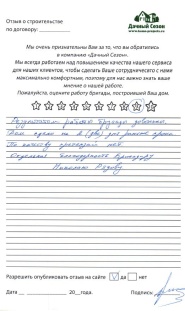 Отзыв о строительстве
по договору:
Дачный Сезон
Мы очень признательны Вам за то, что вы обратились
в компанию «Дачный Сезон».
Мы всегда работаем над повышением качества нашего сервиса
для наших клиентов, чтобы сделать Ваше сотрудничество с нами
максимально комфортным, поэтому для нас важно знать ваше
мнение о нашей работе.
Пожалуйста, оцените работу бригады, построившей Ваш дом.
работой бригады
Дом
По качеству претензий нет
Отдельная благодарность бригадиру
Разрешить опубликовать отзыв на сайте V да нет
Дата 20 года. Подпись: